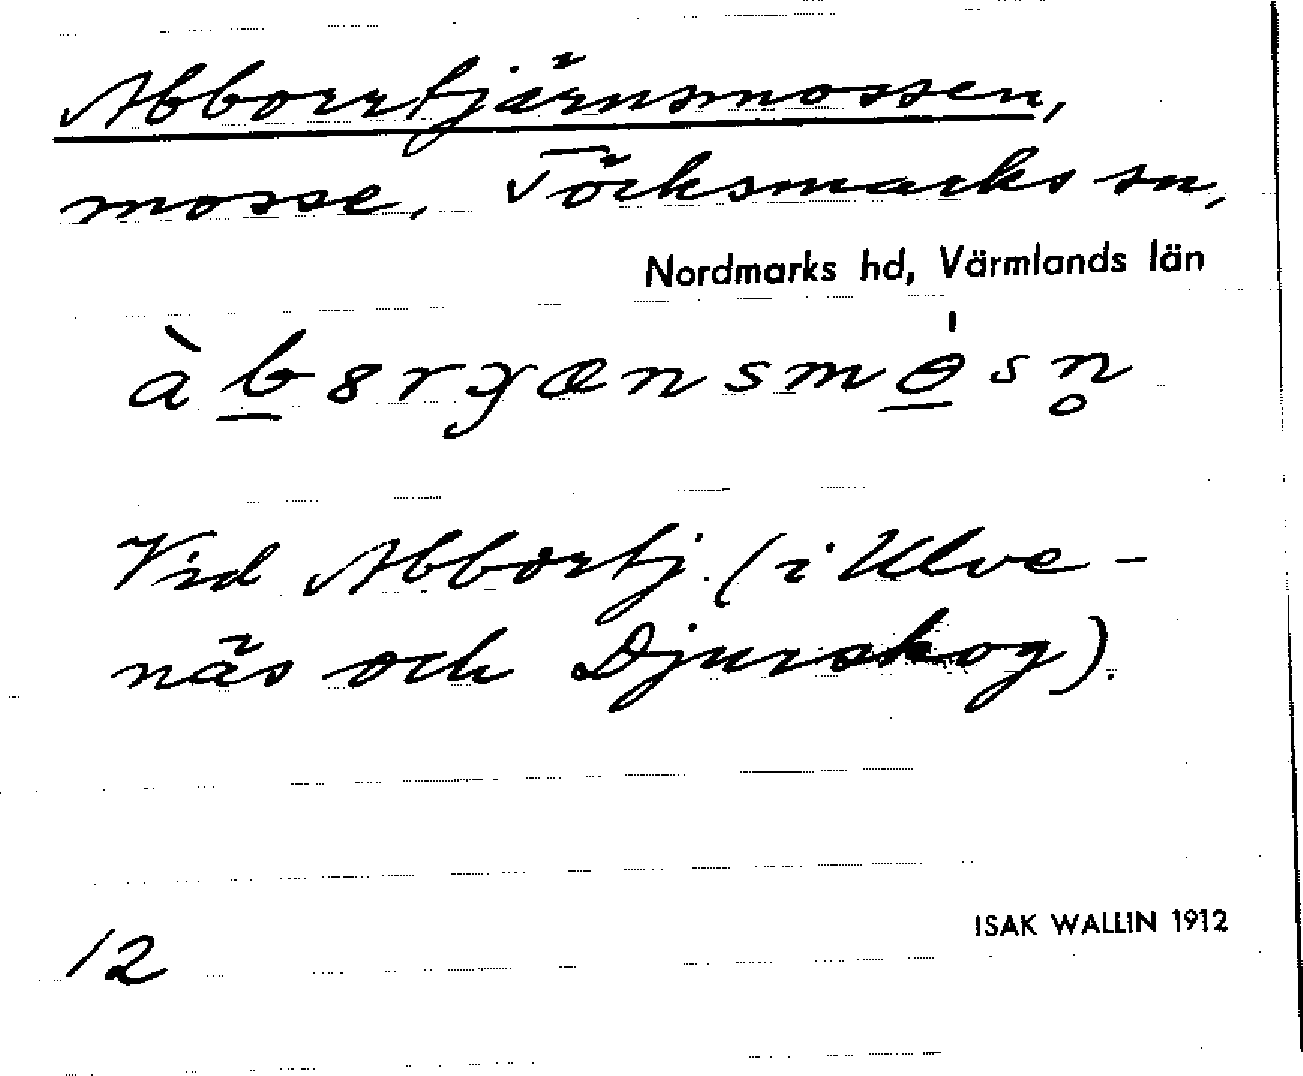 Abborrtjärnsmossen,
mosse. Töcksmarks sn,
Nordmarks hd, Värmlands län
Vid Abbortj. (i Klve-
näs och Djurskog).
ISAK WALLIN 1912
12